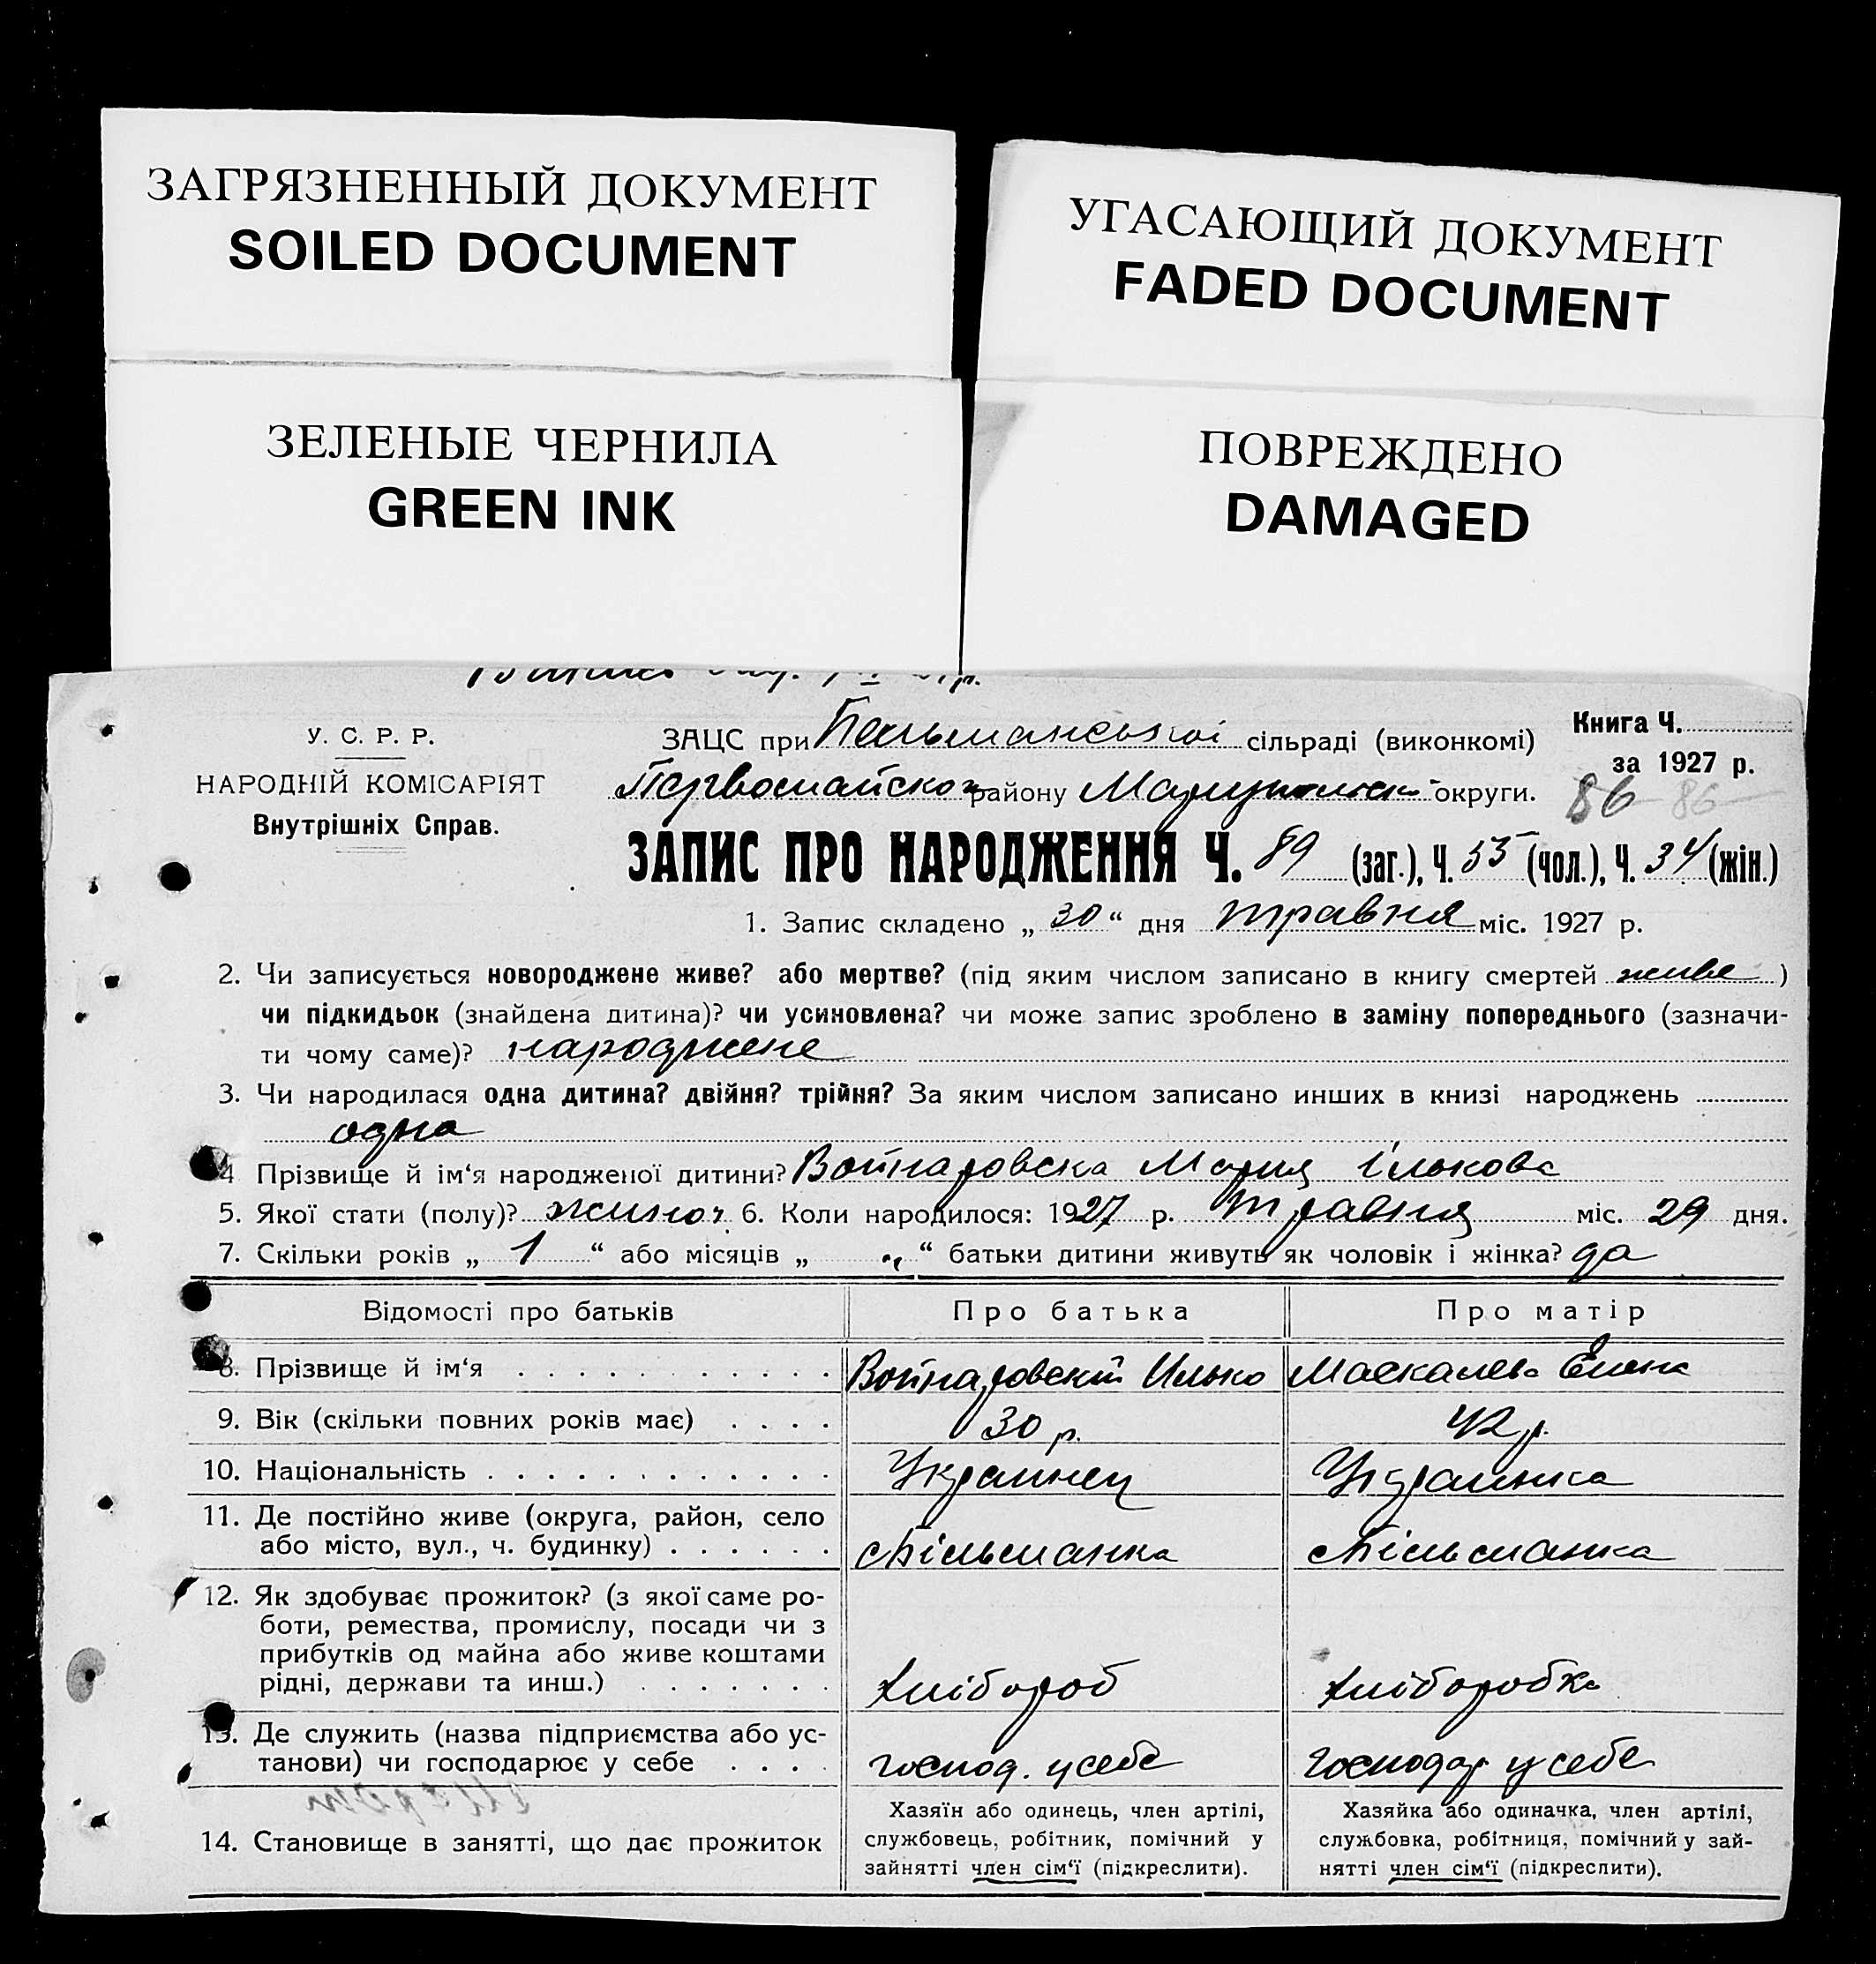 ЗАГРЯЗНЕННЫЙ ДОКУМЕНТ
SOILED DOCUMENT
УГАСАЮЩИЙ ДОКУМЕНТ
FADED DOCUMENT
ЗЕЛЕНЫЕ ЧЕРНИЛА
GREEN INK
ПОВРЕЖДЕНО
DAMAGED
У. С. Р. Р.
НАРОДНІЙ КОМІСАРІЯТ
Внутрішніх Справ.
ЗАЦС при Бельманської сільраді (виконкомі)
Первомайског району Маріупольськ округи.
Книга Ч.
за 1927 р.
86 86
ЗАПИС ПРО НАРОДЖЕННЯ Ч. 89 (заг.), Ч. 55 (чол.), Ч. 34 (жін.)
1. Запис складено „ 30 “ дня травня міс. 1927 р.
2. Чи записується новороджене живе? або мертве? (під яким числом записано в книгу смертей живе )
чи підкидьок (знайдена дитина)? чи усиновлена? чи може запис зроблено в заміну попереднього (зазначи-
ти чому саме)? народжене
3. Чи народилася одна дитина? двійня? трійня? За яким числом записано инших в книзі народжень
одна
4 Прізвище й ім‘я народженої дитини? Войнаровска Мария Ількова
5. Якої стати (полу)? жиноч. 6. Коли народилося: 1927 р. травня міс. 29 дня.
7. Скільки років „ 1 “ або місяців „ „ “ батьки дитини живуть як чоловік і жінка? да
Відомості про батьків Про батька Про матір
8. Прізвище й ім‘я Войнаровский Илько Маскалева Елена
9. Вік (скільки повних років має) 30 р. 42 р.
10. Національність Украинец Украинка
11. Де постійно живе (округа, район, село
або місто, вул., ч. будинку) сБільманка сБільманка
12. Як здобуває прожиток? (з якої саме ро-
боти, ремества, промислу, посади чи з
прибутків од майна або живе коштами
рідні, держави та инш.) хлібороб хліборобка
13. Де служить (назва підприємства або ус-
танови) чи господарює у себе господ. у себе господар у себе
14. Становище в занятті, що дає прожиток
Хазяїн або одинець, член артілі,
службовець, робітник, помічний у
зайнятті член сім‘ї (підкреслити).
Хазяйка або одиначка, член артілі,
службовка, робітниця, помічний у зай-
нятті член сім‘ї (підкреслити).